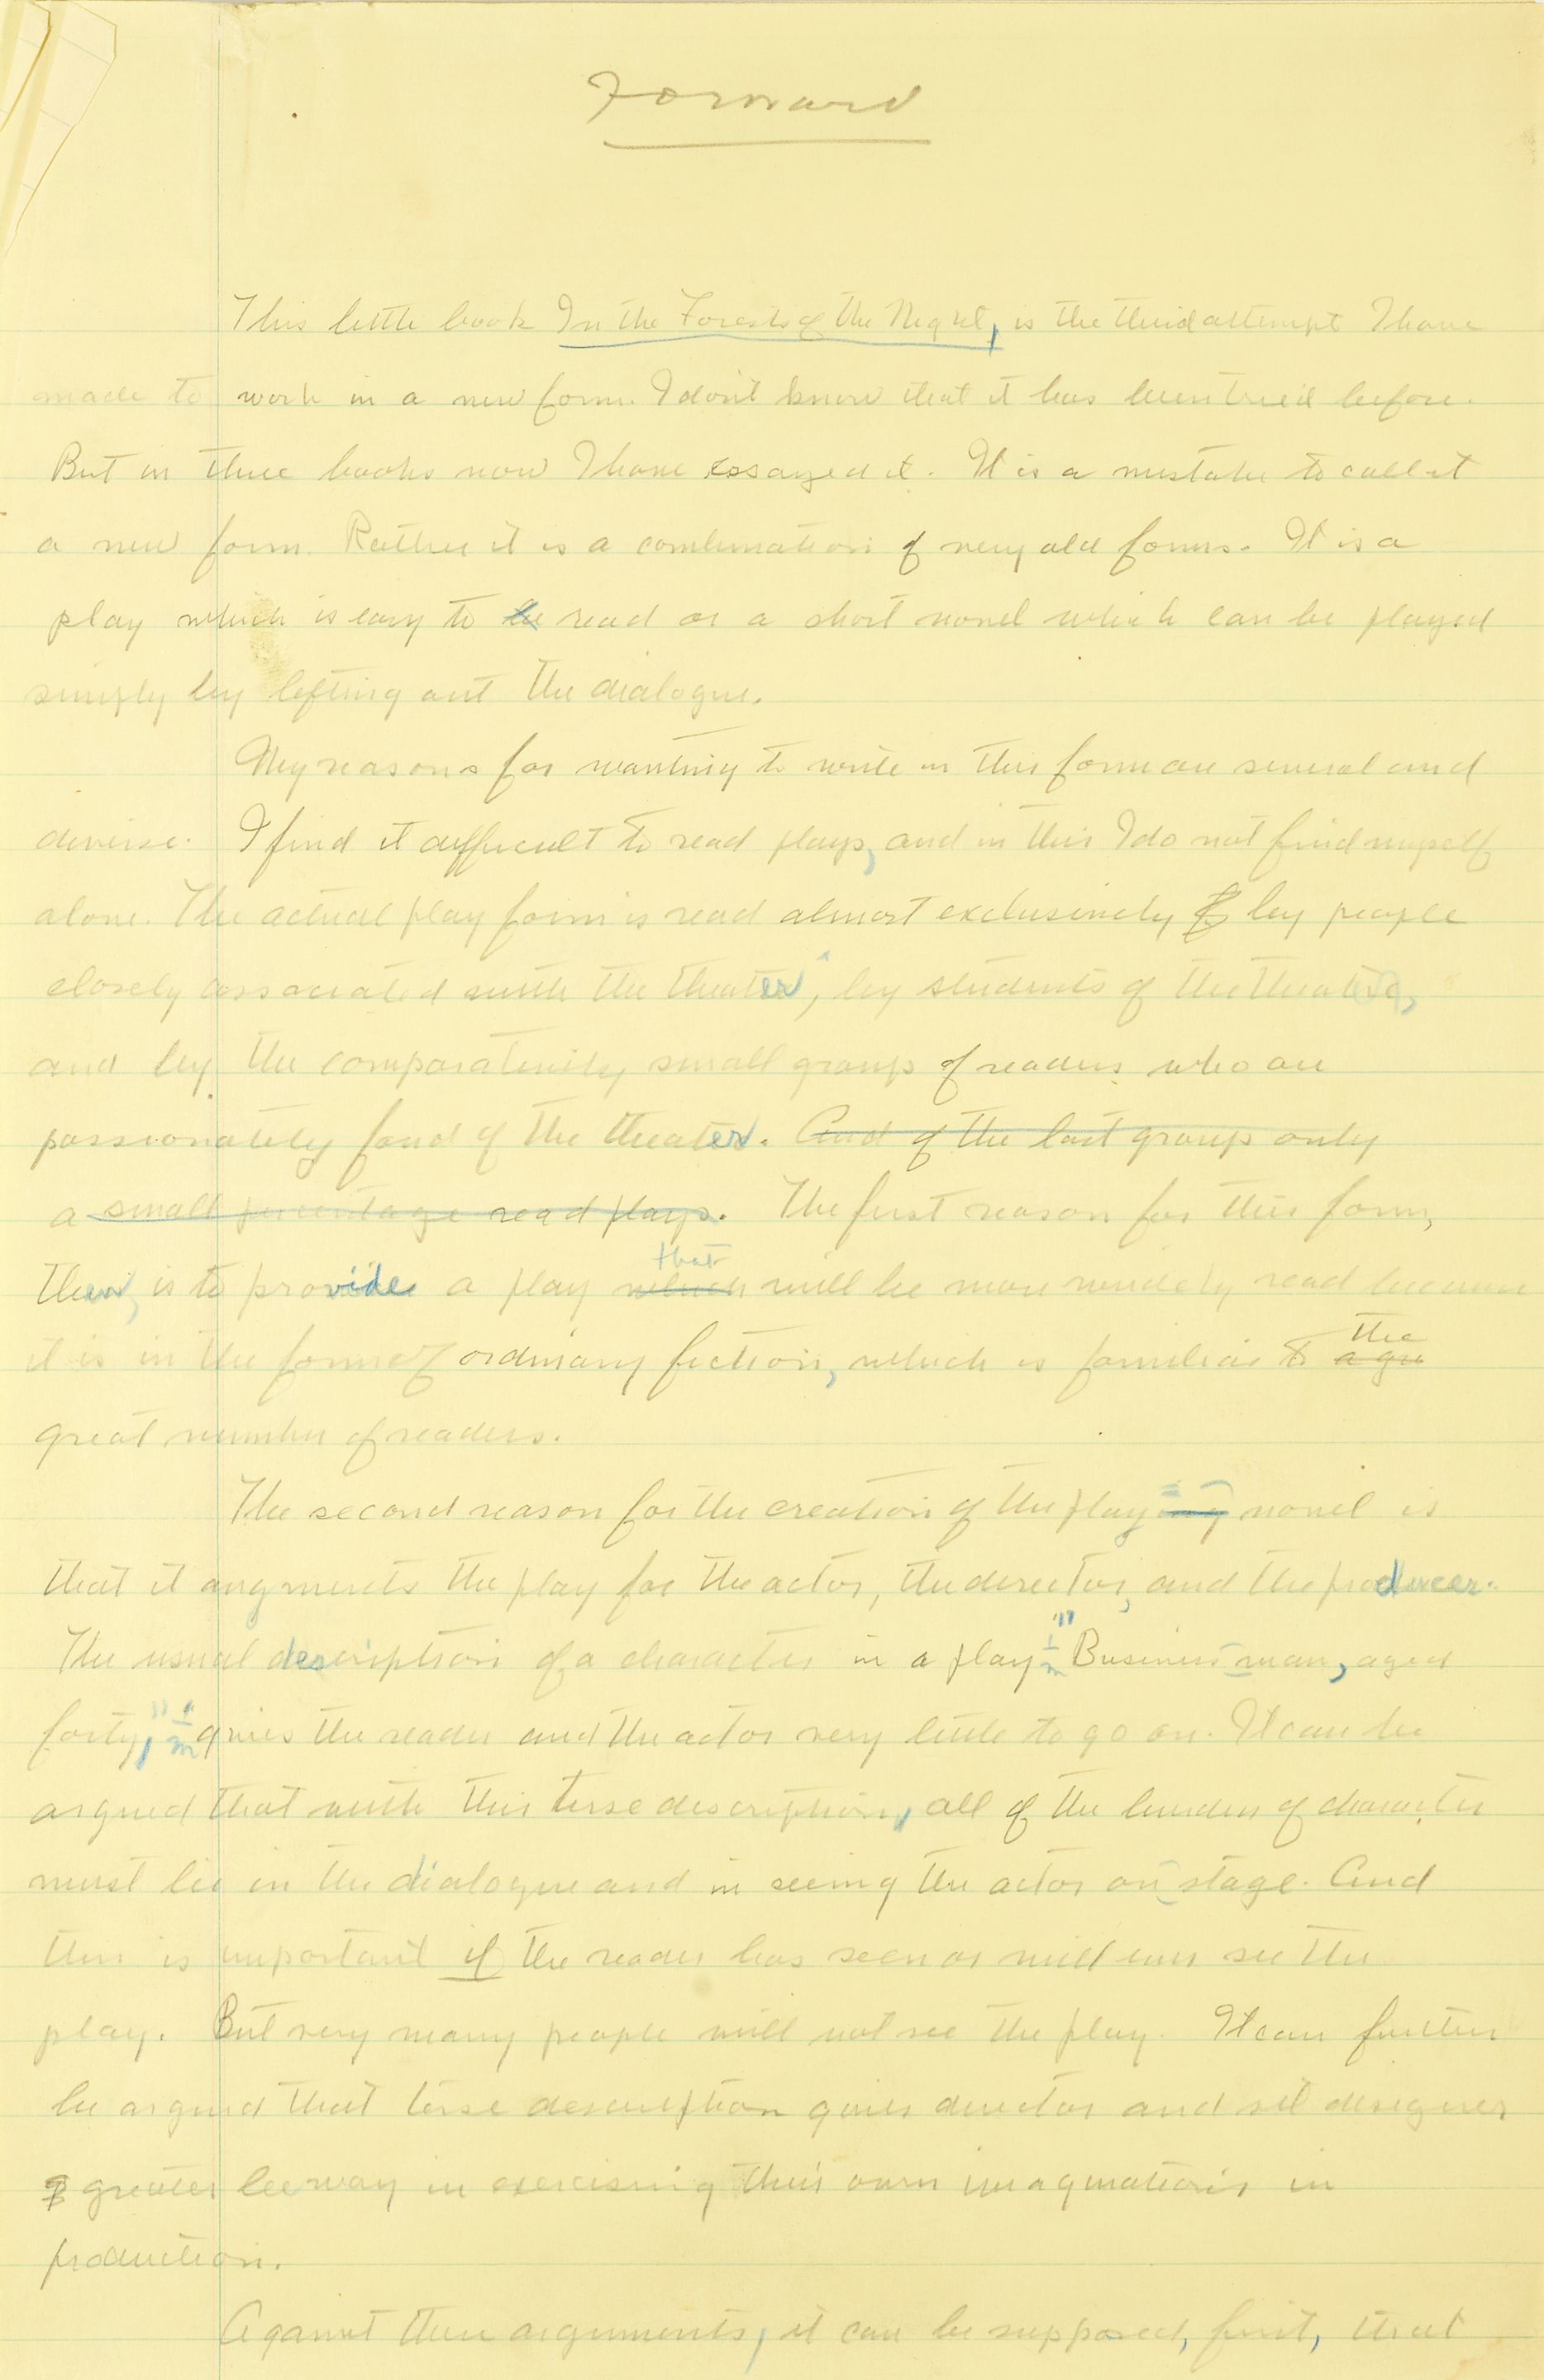 Forward
This little book In the Forests of the Night, is the third attempt I have
made to work in a new form. I don't know that it has been tried before.
But in three books now I have essayed it. It is a mistake to call it
a new form. Rather it is a combination of very old forms. It is a
play which is easy to be read or a short novel which can be played
simply by lifting out the dialogue.
My reasons for wanting to write in this form are several and
diverse. I find it difficult to read plays, and in this I do not find myself
alone. The actual play form is read almost exclusively by people
closely associated with the theater, by students of the theater,
and by the comparatively small group of readers who are
passionately fond of the theater. And of the last group only
a small percentage read plays. The first reason for this form,
then, is to provide a play which that will be more widely read because
it is in the form of ordinary fiction, which is familiar to a gre the
great number of readers.
The second reason for the creation of the playing novel is
that it augments the play for the actor, the director, and the producer.
The usual description of a character in a play "Business man, aged
forty," gives the reader and the actor very little to go on. It can be
argued that with this terse description, all of the burden of character
must lie in the dialogue and in seeing the actor on stage. And
this is important if the reader has seen or will ever see the
play. But very many people will not see the play. It can further
be argued that terse description gives director and set designer
greater leeway in exercising their own imaginations in
production.
Against these arguments, it can be supposed, first, that